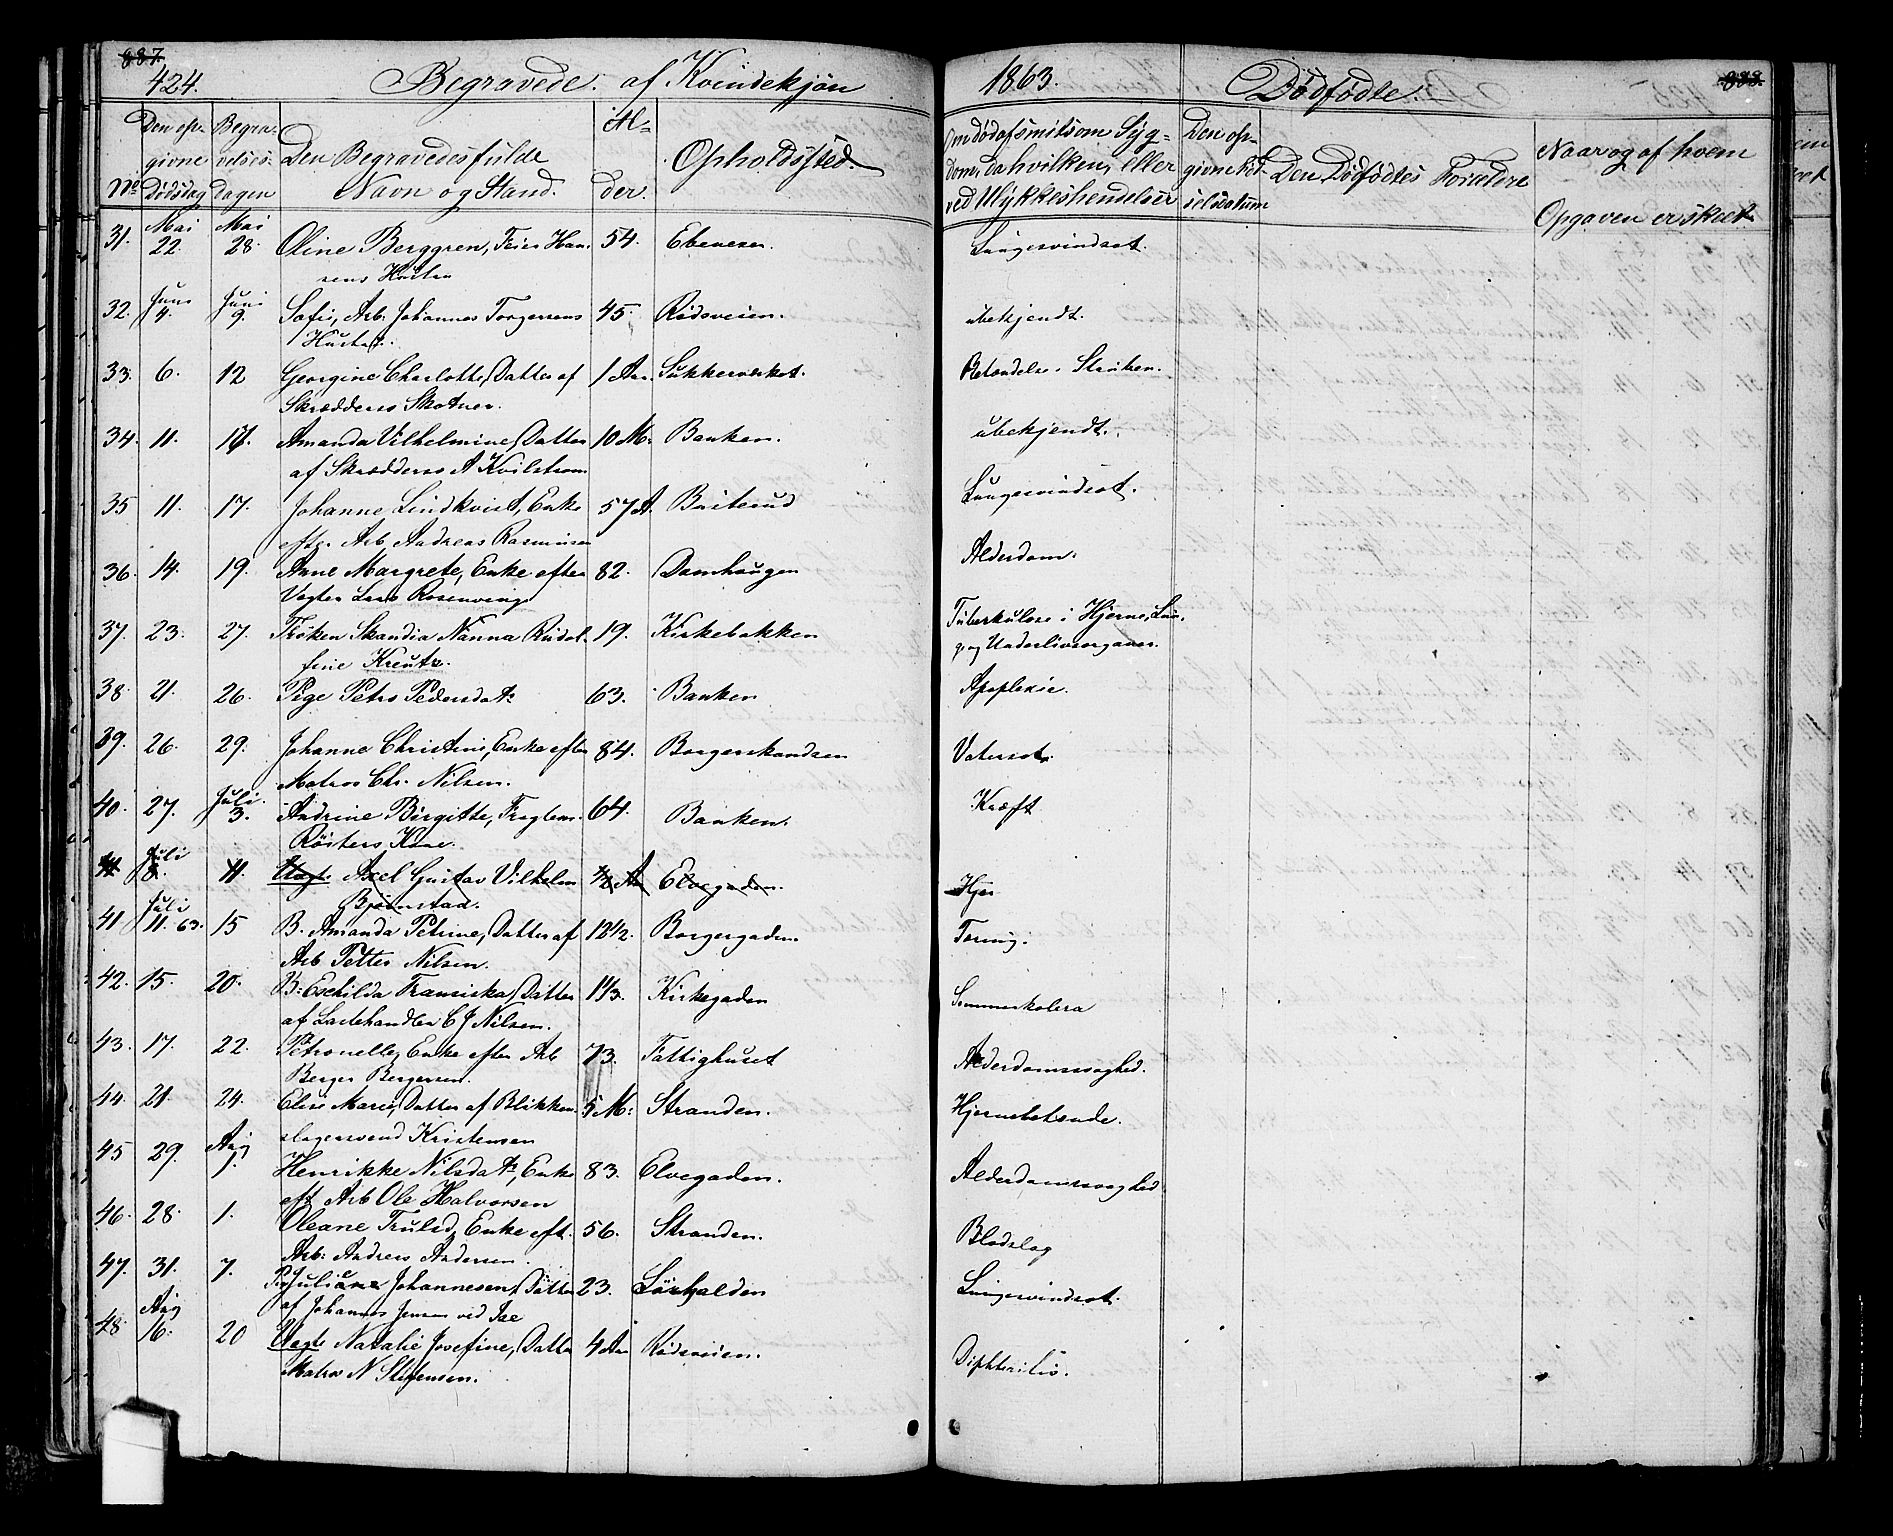 887.
424. Begravede. af Kvindekjøn 1863. Dødfødte. 888.
No
Den opgivne Dødsdag
Begravelses Dagen
Den Begravedes fulde Navn og Stand.
Alder.
Opholdssted.
Om død af smitsom Sygdom, da hvilken, eller ved Ulykkeshendelser
Den opgivne Fødselsdatum
Den Dødfødtes Forældre
Naar og af hvem Opgaven er skeet
31. Mai 22. Mai 28. Oline Berggren, Feier Han 54. Ebeneser. Lungesvindsot.
sens Hustru
32. Juni 4. Juni 9. Sofie, Arb. Johannes Torgersens 45. Rødsveien. ubekjendt.
Hustru.
33. 6. 12 Georgine Charlotte, Datter af 1 Aar. Sukkerverket. Betændelse i Struben.
Skrædders Skotner.
34. 11. 17. Amanda Vilhelmine, Datter 10 M: Banken. ubekjendt.
af Skrædders A Kvilstrom
35 11. 17. Johanne Lindkvist, Enke 57 A. Buiterud Lungesvindsot.
efter Arb. Andreas Rasmusen
36. 14. 19. Anne Margrete, Enke efter 82. Damhaugen Alderdom.
Vegter Lars Rosenvinge
37. 23. 27. Frøken Skandia Nanna Rudol 19. Kirkebakken Tuberkulose i Hjerne, Lun
fine Kreutz. ge og Underlivsorganer.
38. 21. 26. Pige Petro Pedersdatr 63. Banken Apoplexie.
39. 26. 29. Johanne Christine, Enke efter 84. Borgerskandsen Vatersot.
Matros Chr. Nilsen.
40. 27. Juli 3. Andrine Birgitte, 64. Banken. Kræft
Kone.
41 Juli 8. 11. Uægte Axel Gustav Vilhelm 1/2 A Elvegaden. Hjer
Bjørnstad.
41. Juli 11. 63. 15 B. Amanda Petrine, Datter af 12 1/2. Borgergaden Tæring.
Arb Petter Nilsen.
42. 15. 20. B: Eschilda Fransiska, Datter 1 1/3. Kirkegaden Sommerkolera
af Lastehandler C J Nilsen.
43. 17. 22. Petronelle, Enke efter Arb 73. Fattighuset Alderdomssvaghed.
Berger Bergersen.
44. 21. 24. Elise Marie, Datter af Blikken 5 M: Stranden. Hjernebetænde.
slagersvend Kristensen
45 29. Aug 1. Henrikke Nilsdatr, Enke 83. Elvegaden. Alderdomssvaghed
eft Arb Ole Halvorsen
46. 28. 1. Oleane Trulsd, Enke eft. 56. Stranden. Blodslag
Arb: Andreas Andersen.
47. 31. 7. Pg Juliane Johannesen, Datter 23. Sørhalden Lungesvindsot.
af Johannes Jensen ved Isse
48. Aug 16. 20 Uægte Natalie Josefine, Datter 4 Aar Rødsveien. Diphteritis.
Matros N Stefensen.